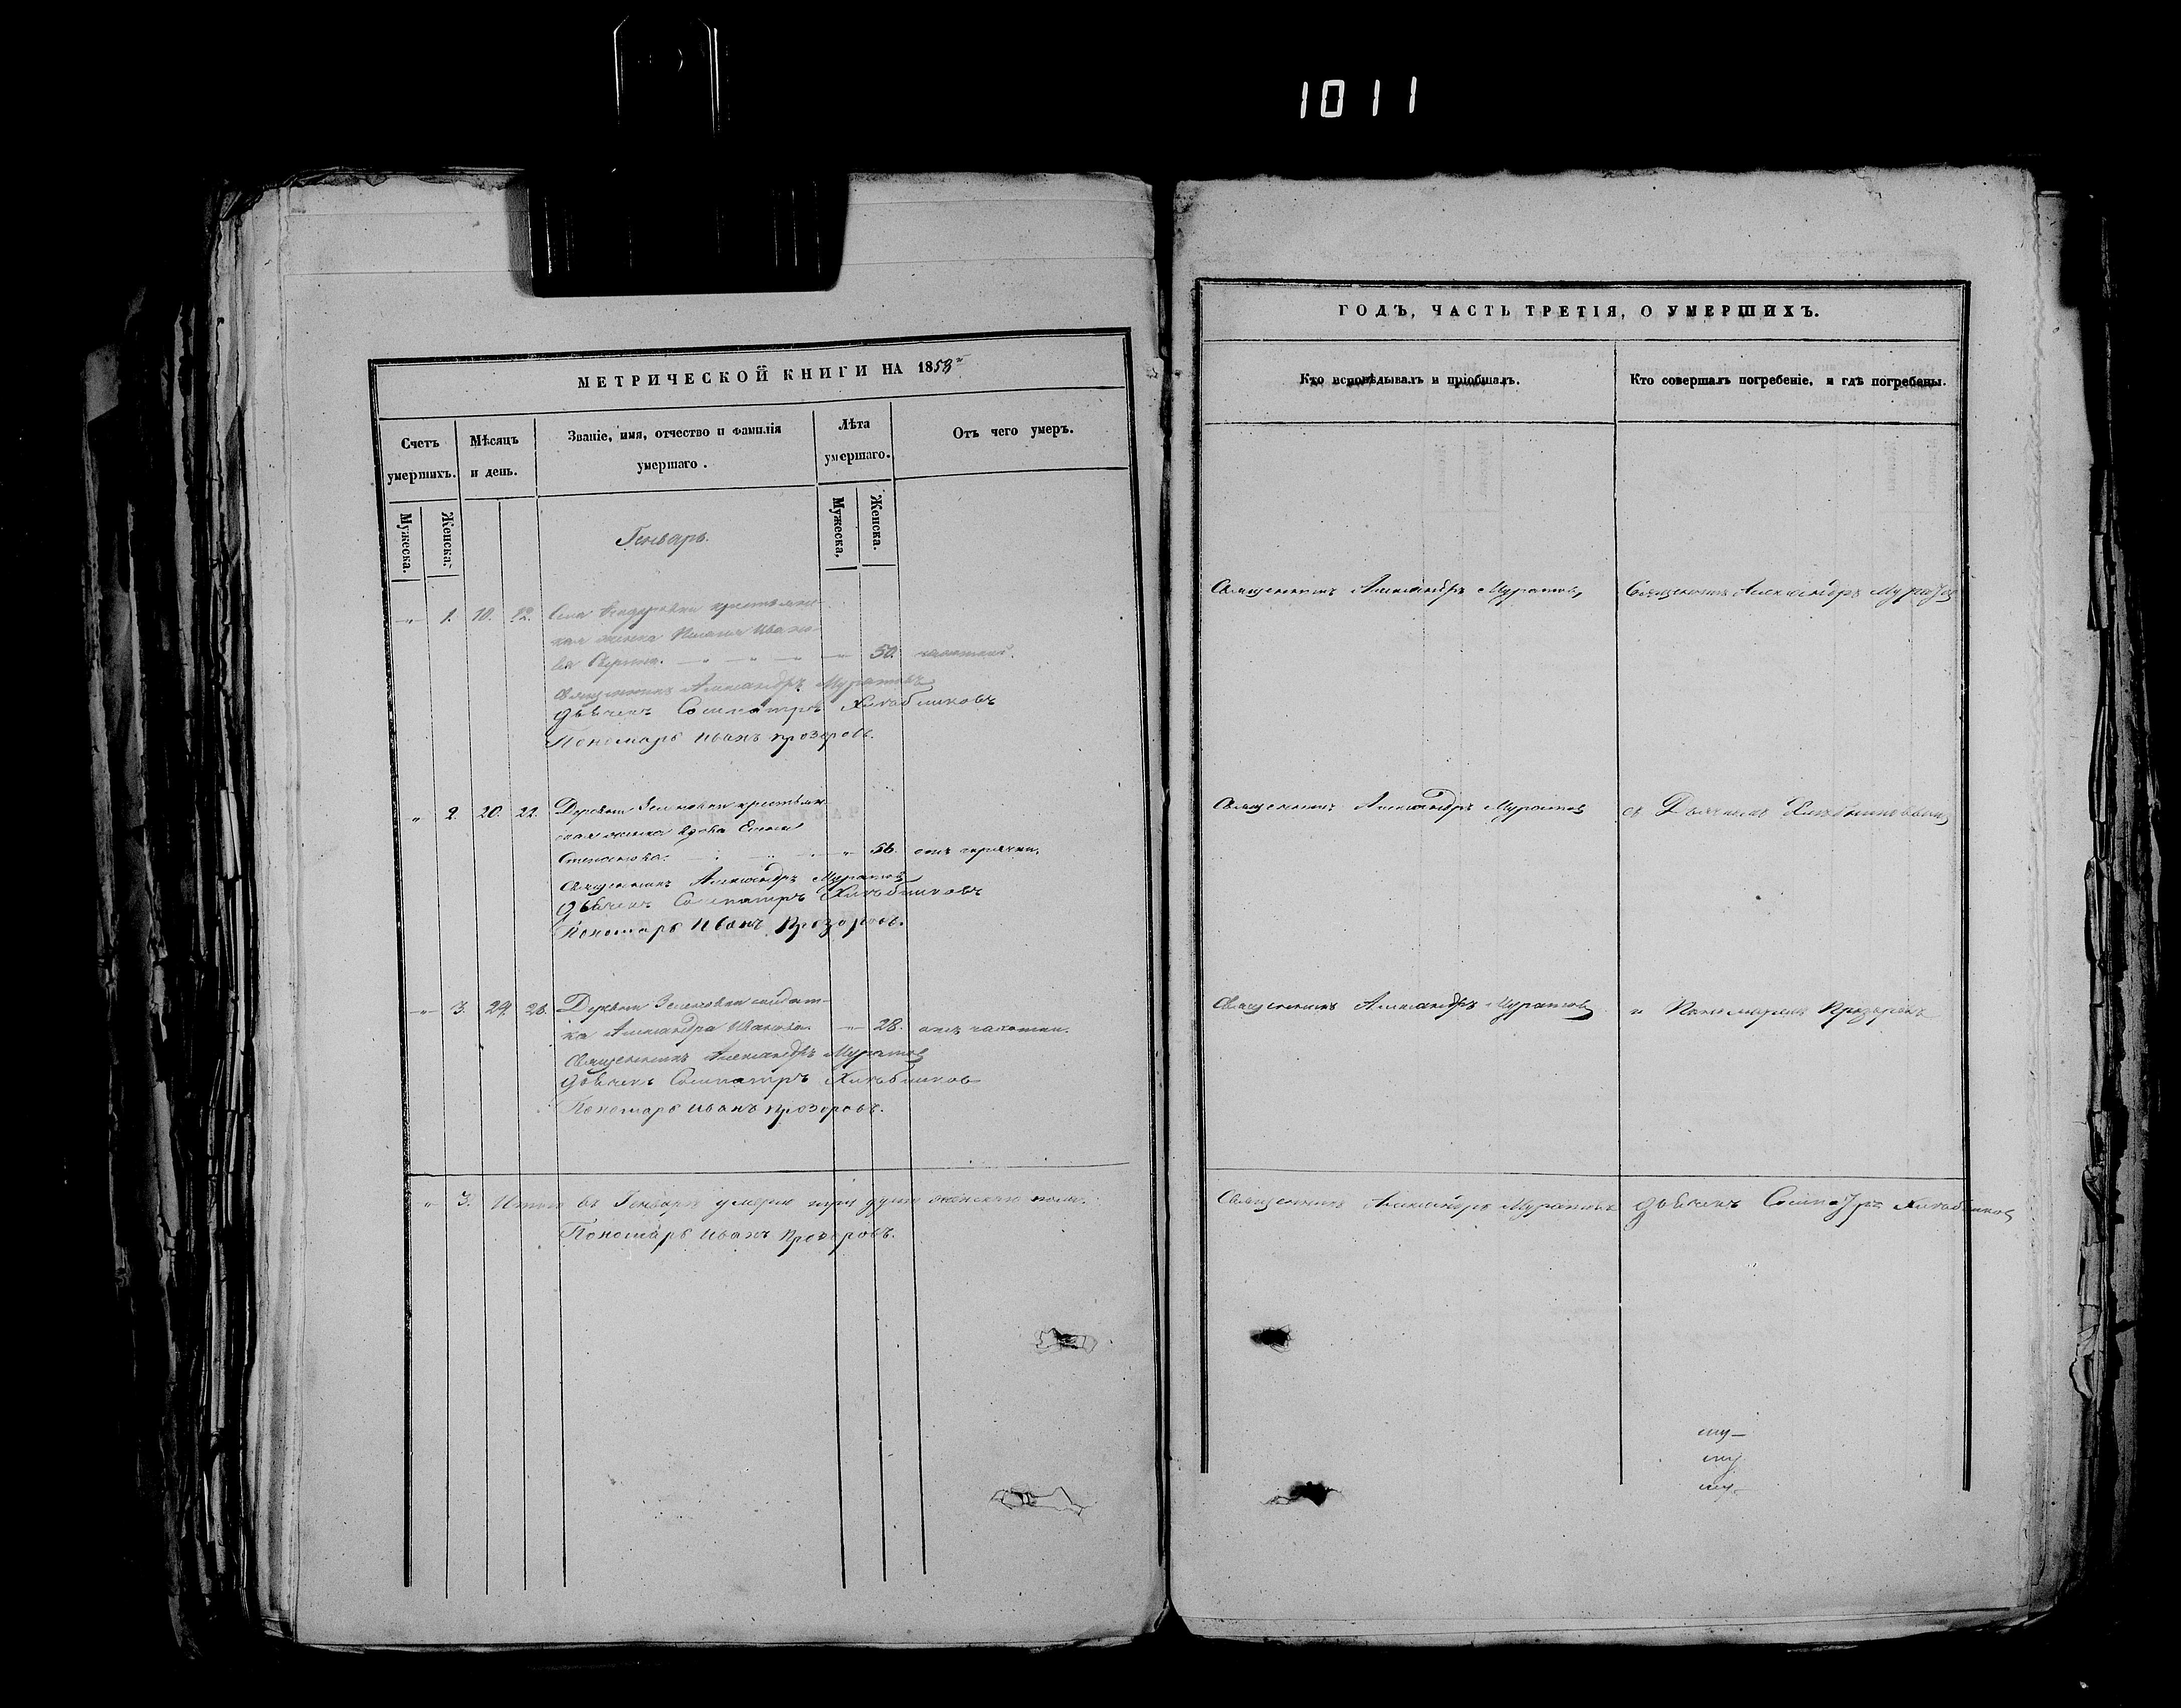 1011
МЕТРИЧЕСКОЙ КНИГИ НА 1853й
Счетъ умершихъ.
Мѣсяцъ и день.
Званіе, имя, отчество и фамилія умершаго.
Лѣта умершаго.
Отъ чего умеръ.
Мужеска.
Женска.
Мужеска,
Женска.
Генварь.
„ 1. 10. 12. Села крестьянская
жена Иванова
50. чахоткой.
Священникъ Александръ Муратовъ
Дьячекъ Сосипатръ Хлѣбниковъ
Пономарь Иванъ Прозоровъ.
„ 2. 20. 22. Деревни крестьянская
вдова Елена
Степанова. 56. отъ горячки.
Священникъ Александръ Муратовъ
Дьячекъ Сосипатръ Хлѣбниковъ
Пономарь Иванъ Прозоровъ.
„ 3. 24. 26. Деревни солдатка
Александра Иванова. „ 28. отъ чахотки.
Священникъ Александръ Муратовъ
Дьячекъ Сосипатръ Хлѣбниковъ
Пономарь Иванъ Прозоровъ.
„ 3. Итого въ Генварѣ умерло три души женскаго пола.
Пономарь Иванъ Прозоровъ.
ГОДЪ, ЧАСТЬ ТРЕТІЯ, О УМЕРШИХЪ.
Кто исповѣдывалъ и пріобщалъ.
Кто совершалъ погребеніе, и гдѣ погребены.
Священникъ Александръ Муратовъ
Священникъ Александръ Муратовъ
Священникъ Александръ Муратовъ
съ Дьячкомъ Хлѣбниковымъ
Священникъ Александръ Муратовъ
и Пономаремъ Прозоровымъ
Священникъ Александръ Муратовъ
Дьячекъ Сосипатръ Хлѣбниковъ